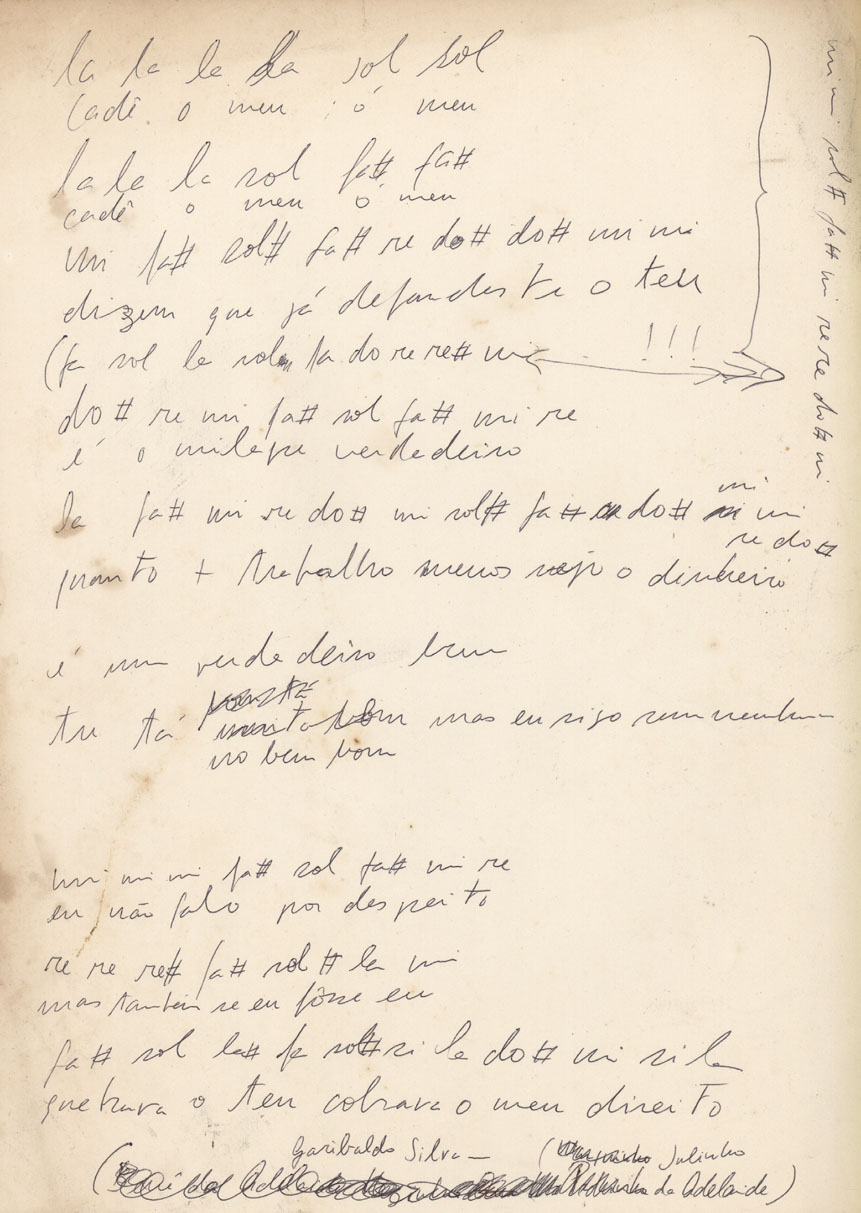 la la la la sol sol
Cadê o meu ó meu
la la la sol fa# fa#
cadê o meu ó meu
mi fa# sol# fa# re do# do# mi mi
dizem que já defendeste o teu
(fa sol la sol fa do re re# mi !!!
do# re mi fa# sol fa# mi re
é o milagre verdadeiro
la fa# mi re do# mi sol# fa# do# mi mi
re do#
quanto + trabalho menos vejo o dinheiro
é um verdadeiro bum
tu tá mas eu sigo sem nenhum
no bem bom
mi mi mi fa# sol fa# mi re
eu não falo por despeito
re re re# fa# sol# la mi
mas também se eu fôsse eu
fa# sol la# fa sol# si la do# mi si la
quebrava o teu cobrava o meu direito
Garibaldo Silva — ( Julinho
da Adelaide)
mi mi sol# fa# mi re re do# mi